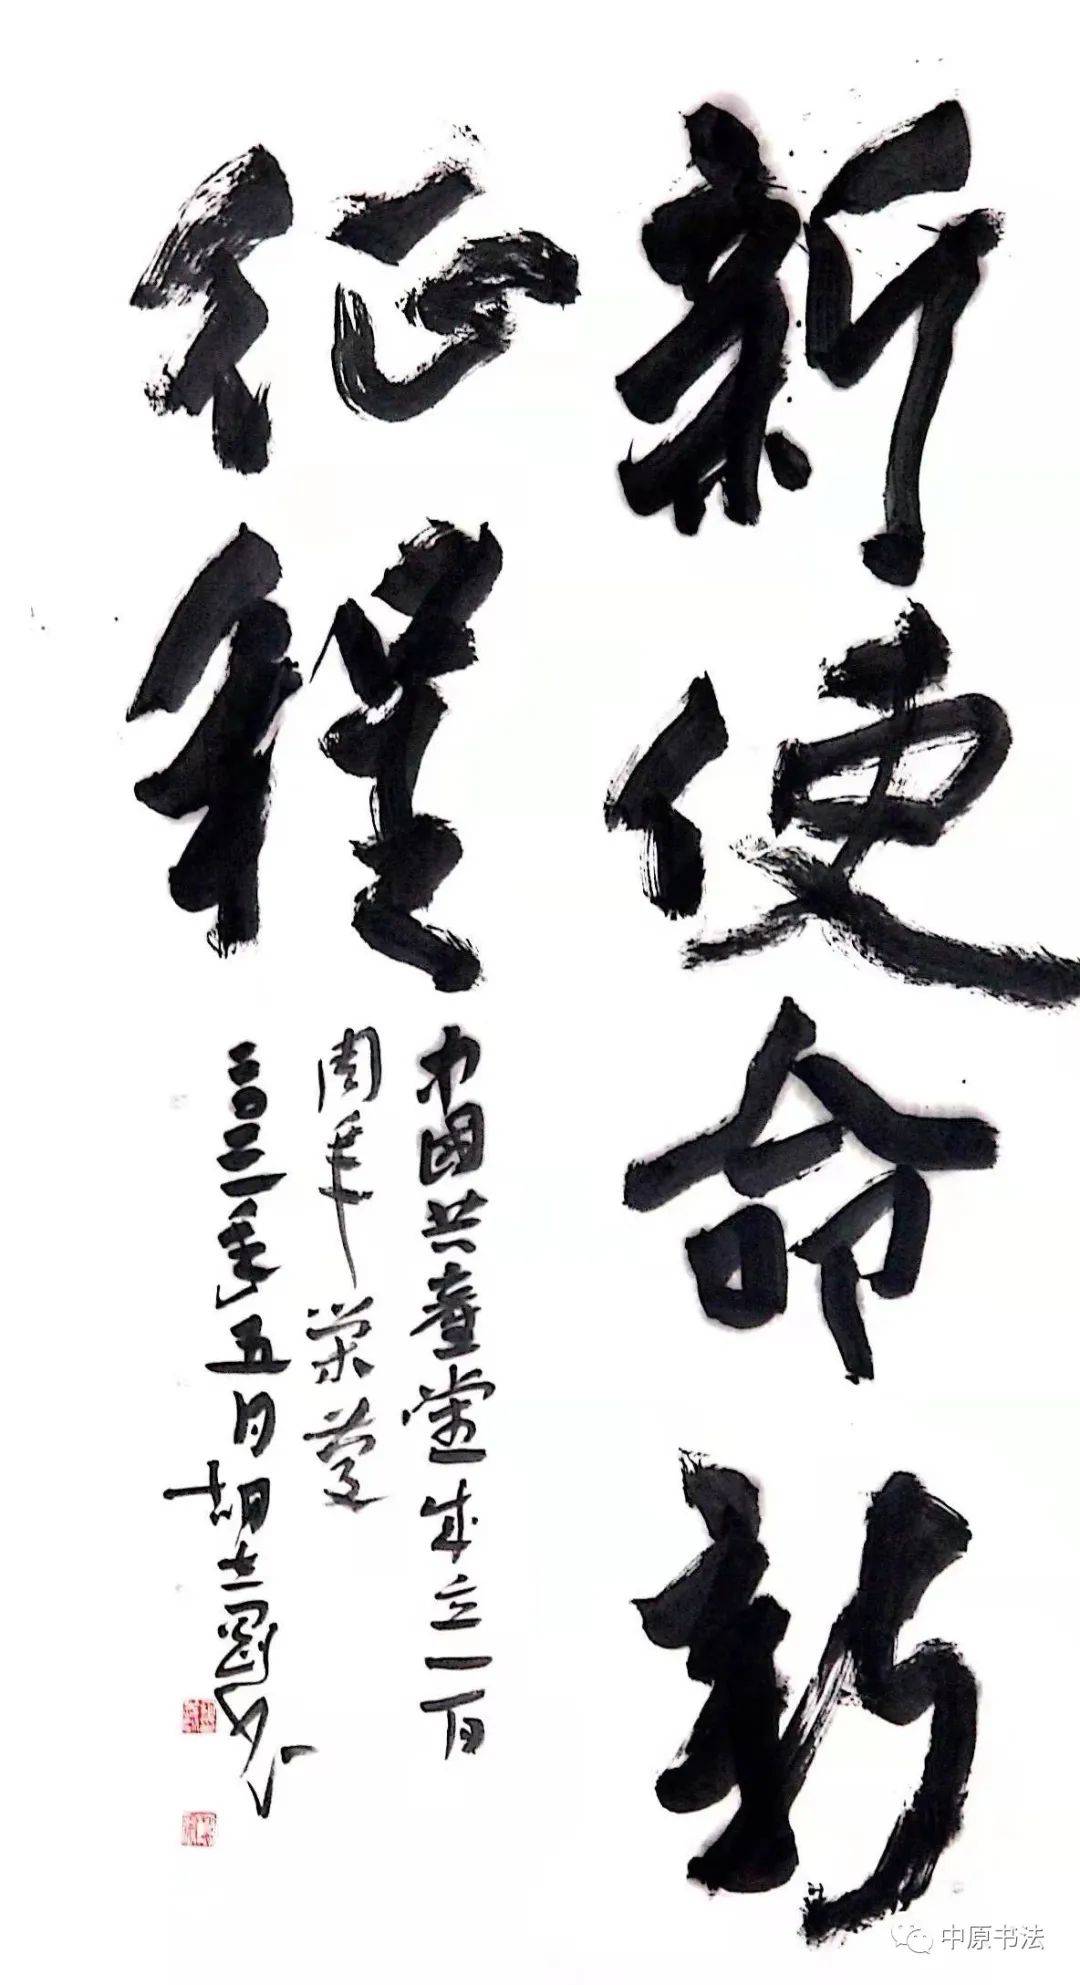 新使命新
征程
中國共產黨成立一百
周年荣庆
二〇二一年五月胡士
中原书法